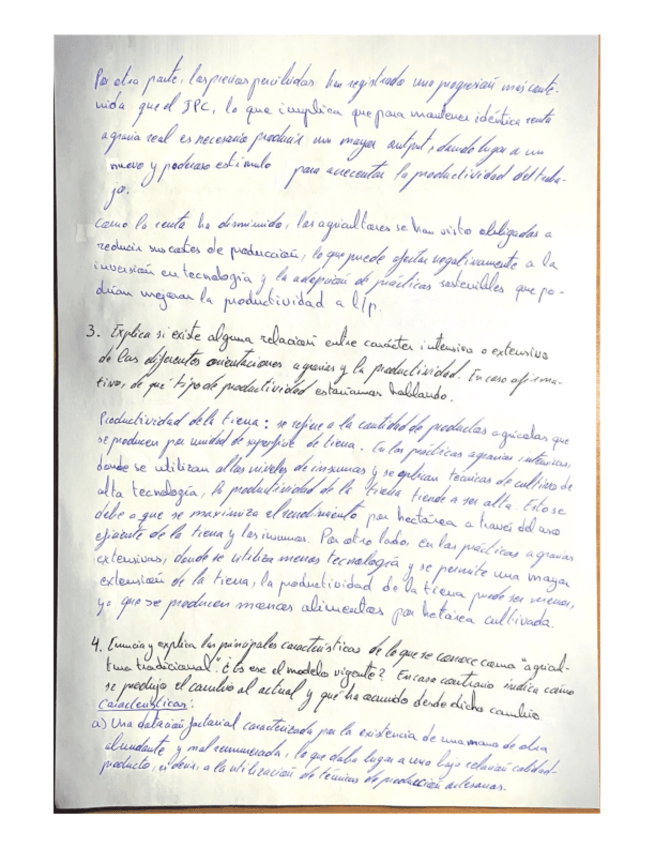 Por otra parte, los precios percibidos han registrado una progresión más conte-
nida que el IPC, lo que implica que para mantener idéntica renta
agraria real es necesario producir un mayor output, dando lugar a un
nuevo y poderoso estímulo para acrecentar la productividad del traba-
jo.
Como la renta ha disminuido, los agricultores se han visto obligados a
reducir sus costes de producción, lo que puede afectar negativamente a la
inversión en tecnología y la adopción de prácticas sostenibles que po-
drían mejorar la productividad a l/p.
3. Explica si existe alguna relación entre carácter intensivo o extensivo
de las diferentes orientaciones agrarias y la productividad. En caso afirma-
tivo, de qué tipo de productividad estaríamos hablando.
Productividad de la tierra: se refiere a la cantidad de productos agrícolas que
se producen por unidad de superficie de tierra. En las prácticas agrarias intensivas,
donde se utilizan altos niveles de insumos y se aplican técnicas de cultivo de
alta tecnología, la productividad de la tierra tiende a ser alta. Esto se
debe a que se maximiza el rendimiento por hectárea a través del uso
eficiente de la tierra y los insumos. Por otro lado, en las prácticas agrarias
extensivas, donde se utiliza menos tecnología y se permite una mayor
extensión de la tierra, la productividad de la tierra puede ser menor,
ya que se producen menos alimentos por hetárea cultivada.
4. Enuncia y explica las principales características de lo que se conoce como "agricul-
tura tradicional". ¿Es ese el modelo vigente? En caso contrario indica cómo
se produjo el cambio al actual y qué ha ocurrido desde dicho cambio
Características:
a) Una dotación factorial caracterizada por la existencia de una mano de obra
abundante y mal remunerada, lo que daba lugar a una baja relación calidad-
producto, es decir, a la utilización de técnicas de producción artesanas.